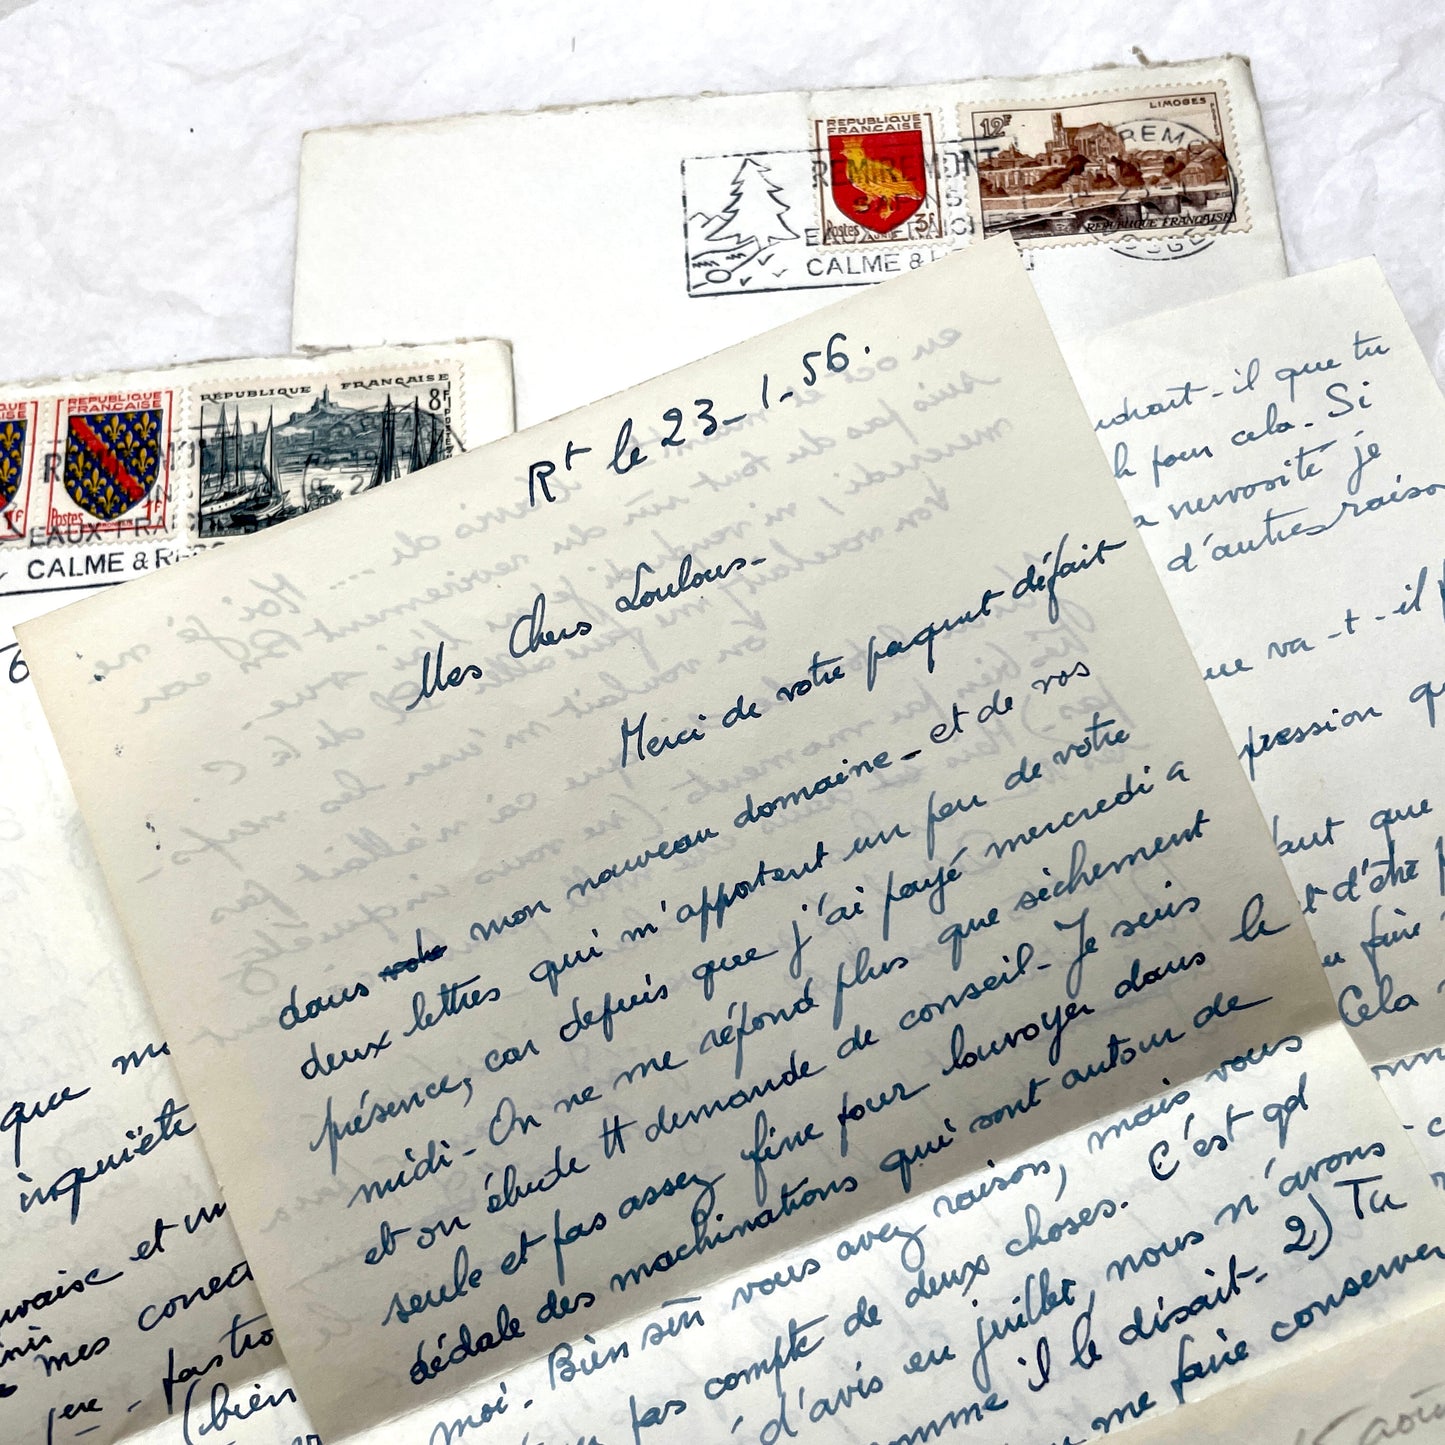 REPUBLIQUE
FRANCAISE
Postes
3F
12F
LIMOGES
REPUBLIQUE FRANCAISE
REMIREMONT
CALME &
REPUBLIQUE
FRANCAISE
Postes
1F
REPUBLIQUE FRANCAISE
8F
EAUX-FRA
CALME & REPO
Rt le 23-1-56.
Mes Chers Loulous-
Merci de votre paquet défait
dans votre mon nouveau domaine - et de vos
deux lettres qui m'apportent un peu de votre
présence, car depuis que j'ai payé mercredi à
midi - On ne me répond plus que sèchement
et on élude tt demande de conseil - Je suis
seule et pas assez fine pour louvoyer dans le
dédale des machinations qui sont autour de
moi. Bien sûr vous avez raison, mais vous
pas compte de deux choses. C'est qd
d'avis en juillet, nous n'avons
comme il le disait - 2) Tu
me faire conserver
il que tu
pour cela - Si
a nervosité je
d'autres raiso
ue va-t-il
pression qu
aut que
t d'été
faire
Cela
que
inquiète
et
mes
(bien